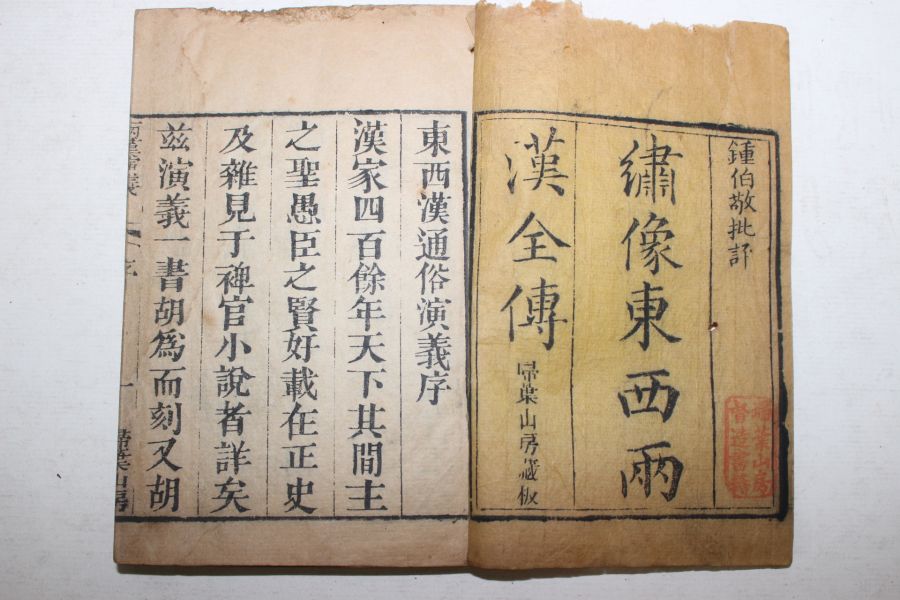 鍾伯敬批評
繡像東西兩
漢全傳
埽葉山房藏板
埽葉山房
督造書籍
東西漢通俗演義序
漢家四百餘年天下其間主
之聖愚臣之賢奸載在正史
及雜見于稗官小說者詳矣
茲演義一書胡為而刻又胡
序
一
埽葉山房